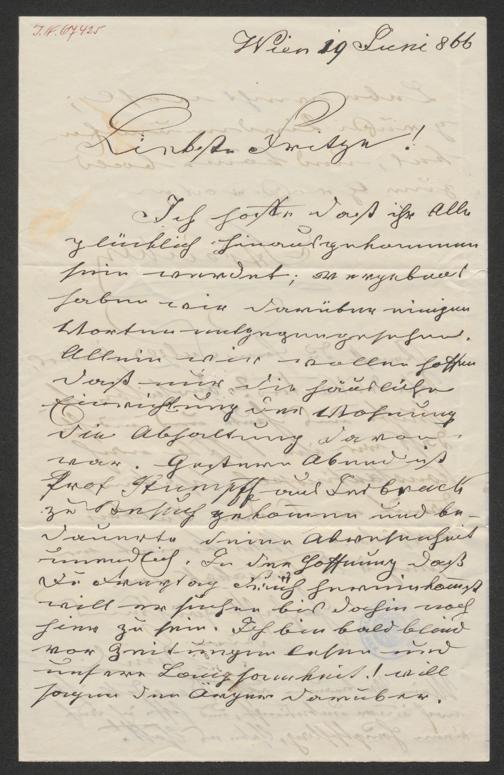 I.N. 67425
Wien 19 Juni 866
Liebste Fritze!
Ich hoffe daß ihr Alle
glücklich hinausgekommen
sein werdet; vergebens
haben wir darüber einigen
Worten entgegengesehen.
Allein wir wollen hoffen
daß nur die häusliche
Einrichtung der Wohnung
die Abhaltung davon
war. Gestern Abend ist
Prof aus
zu Besuch gekommen und be-
dauerte deine Abwesenheit
unendlich. In der Hoffnung daß
Du Freytag früh hereinkommst
will er suchen bis dahin noch
hier zu sein. Ich bin bald blind
vor Zeitungen lesen und
unsere Langsamkeit! will
sagen den Ärger darüber.